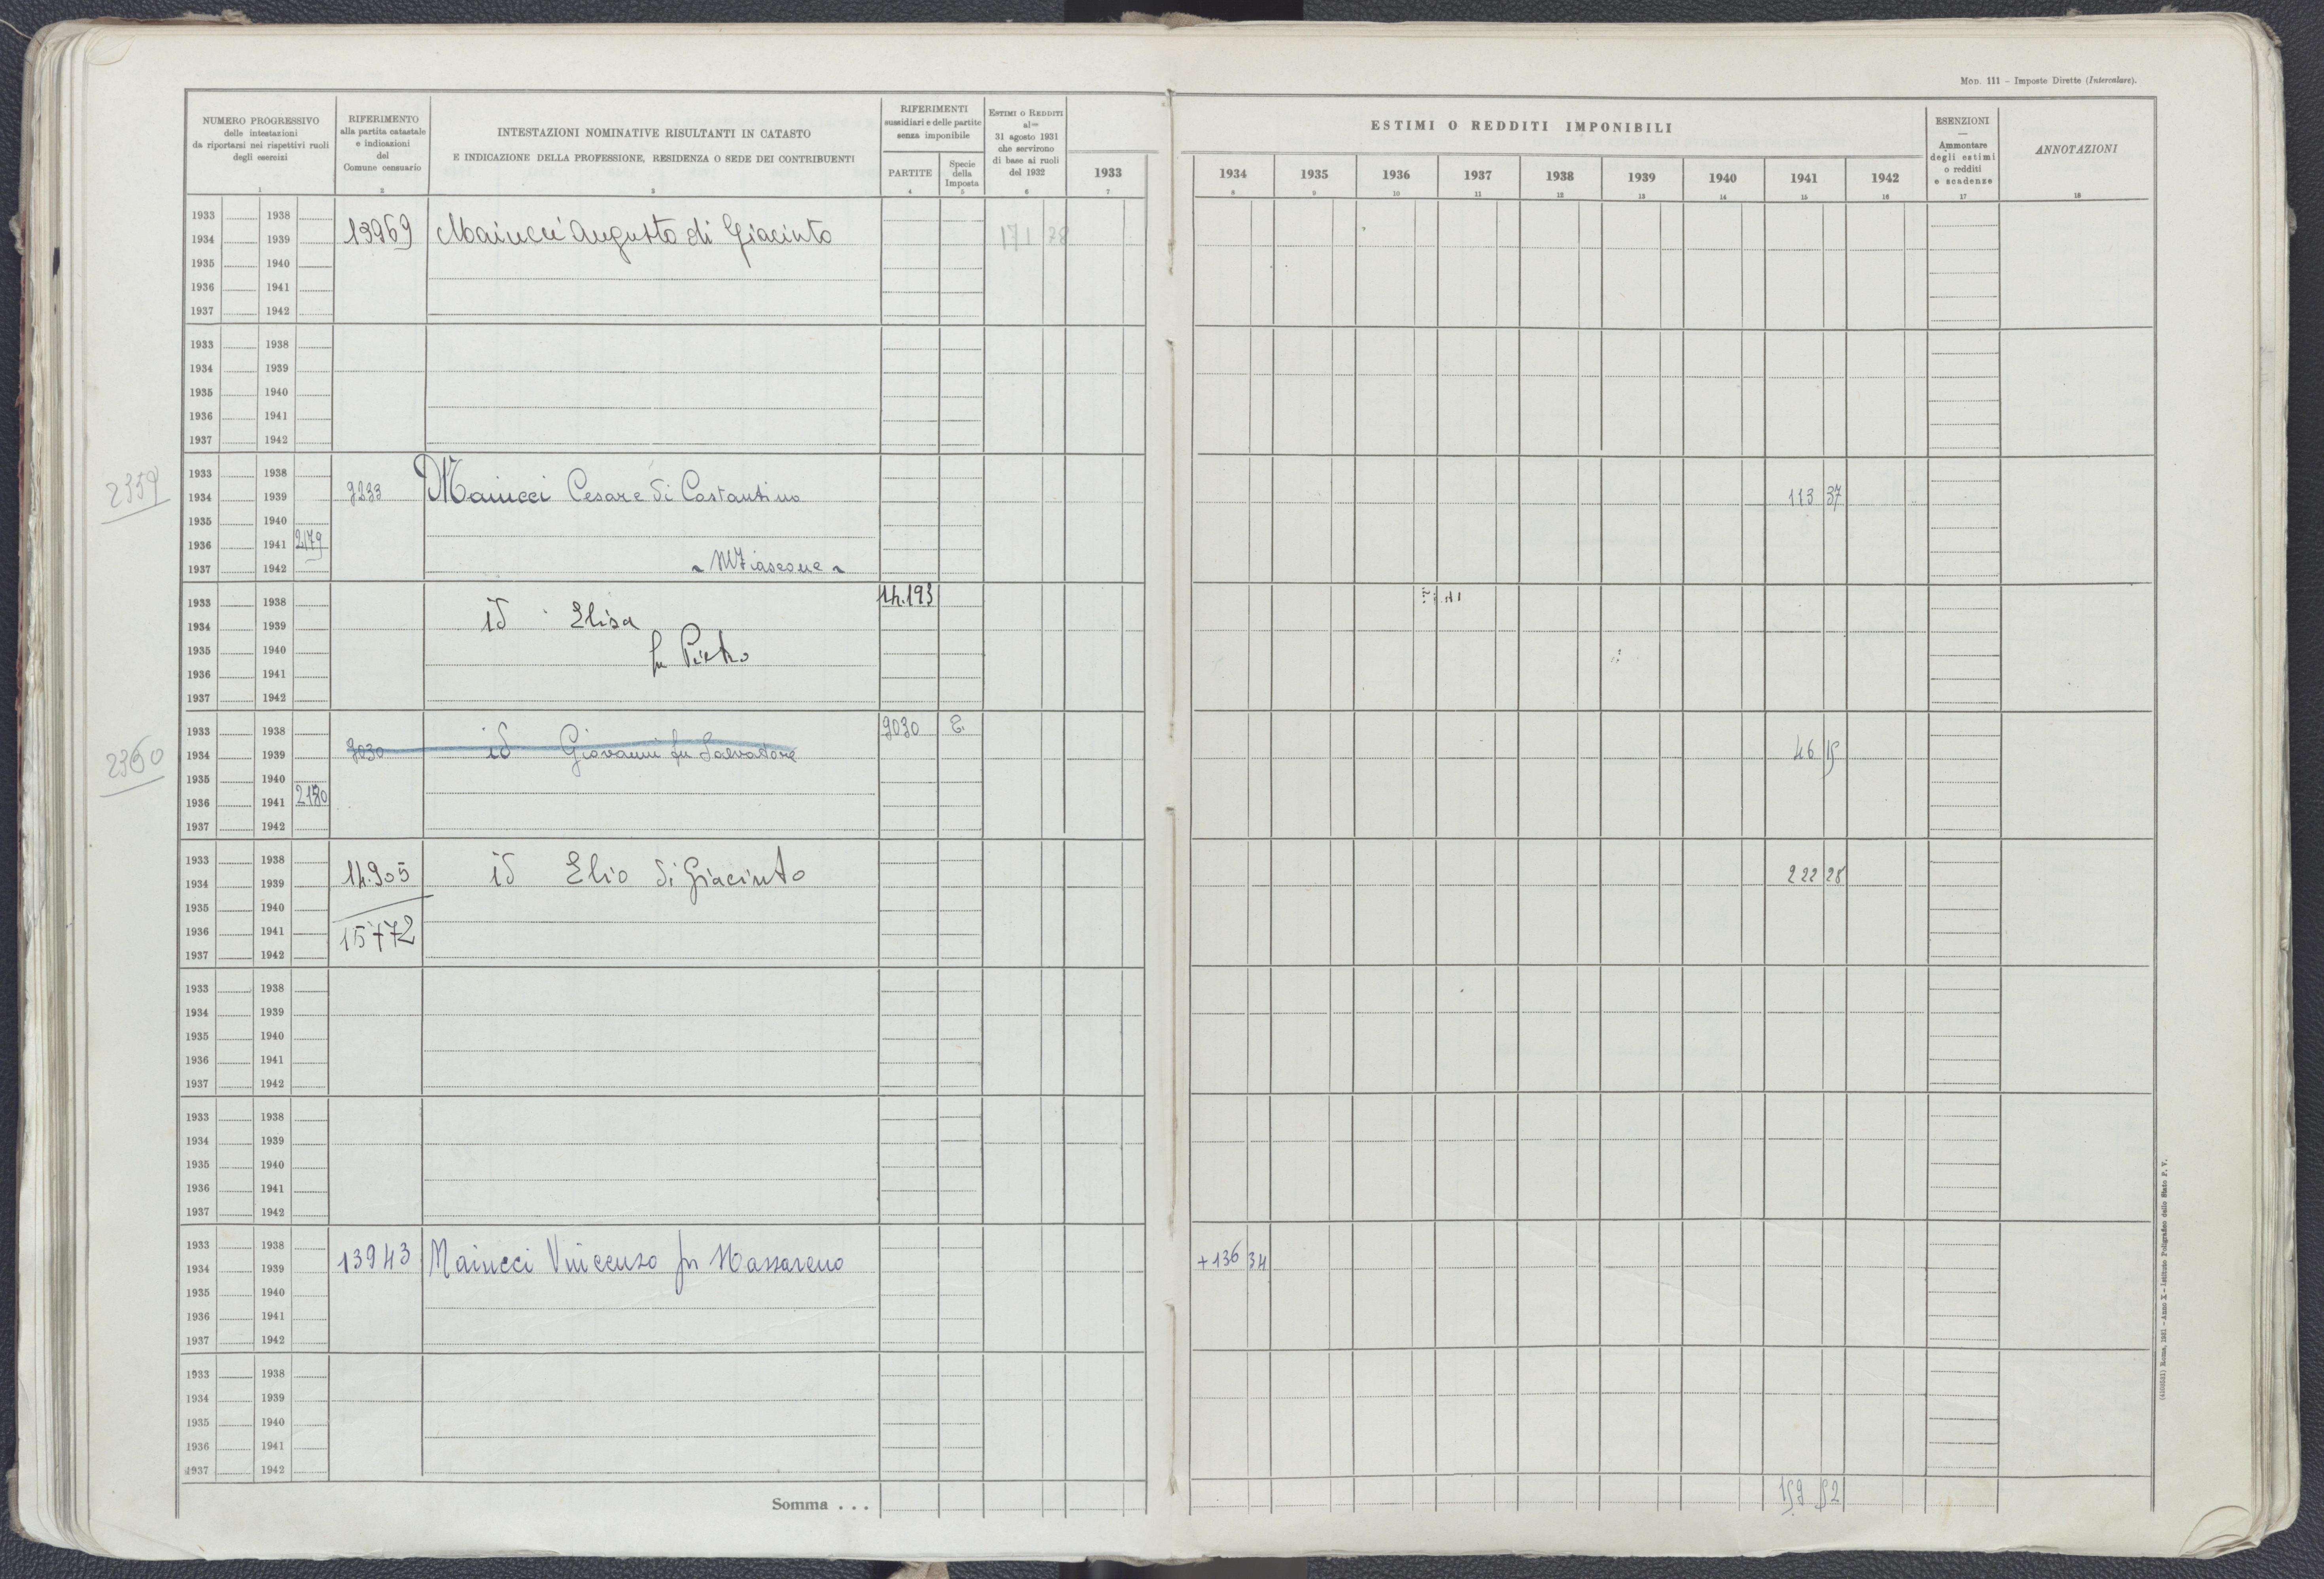 Mod. 111 - Imposte Dirette (Intercalare).
NUMERO PROGRESSIVO
delle intestazioni
da riportarsi nei rispettivi ruoli
degli esercizi
1
RIFERIMENTO
alla partita catastale
e indicazioni
del
Comune censuario
2
INTESTAZIONI NOMINATIVE RISULTANTI IN CATASTO
E INDICAZIONE DELLA PROFESSIONE, RESIDENZA O SEDE DEI CONTRIBUENTI
3
RIFERIMENTI
sussidiari e delle partite
senza imponibile
PARTITE
4
Specie
della
Imposta
5
ESTIMI O REDDITI
al
31 agosto 1931
che servirono
di base ai ruoli
del 1932
6
1933
7
ESTIMI O REDDITI IMPONIBILI
1934 1935 1936 1937 1938 1939 1940 1941 1942
8 9 10 11 12 13 14 15 16
ESENZIONI
—
Ammontare
degli estimi
o redditi
e scadenze
17
ANNOTAZIONI
18
1933 1938
1934 1939 13969 Mainucci Augusto di Giacinto 171 78
1935 1940
1936 1941
1937 1942
1933 1938
1934 1939
1935 1940
1936 1941
1937 1942
1933 1938
2359 1934 1939 9233 Mainucci Cesare di Costantino 113 37
1935 1940
1936 1941 2179
1937 1942 M/Fiascone
1933 1938 14.193
1934 1939 id Elisa
1935 1940 fu Pietro
1936 1941
1937 1942
1933 1938 9030
2360 1934 1939 9030 id Giovanni fu Salvatore 46 15
1935 1940
1936 1941 2180
1937 1942
1933 1938
1934 1939 14.905 id Elio di Giacinto 222 28
1935 1940
1936 1941 15772
1937 1942
1933 1938
1934 1939
1935 1940
1936 1941
1937 1942
1933 1938
1934 1939
1935 1940
1936 1941
1937 1942
1933 1938
1934 1939 13943 Mainucci Vincenzo fu Nazzareno +136 34
1935 1940
1936 1941
1937 1942
1933 1938
1934 1939
1935 1940
1936 1941
1937 1942
Somma . . . 159 52
Roma, 1931 - Anno X - Istituto Poligrafico dello Stato P. V.